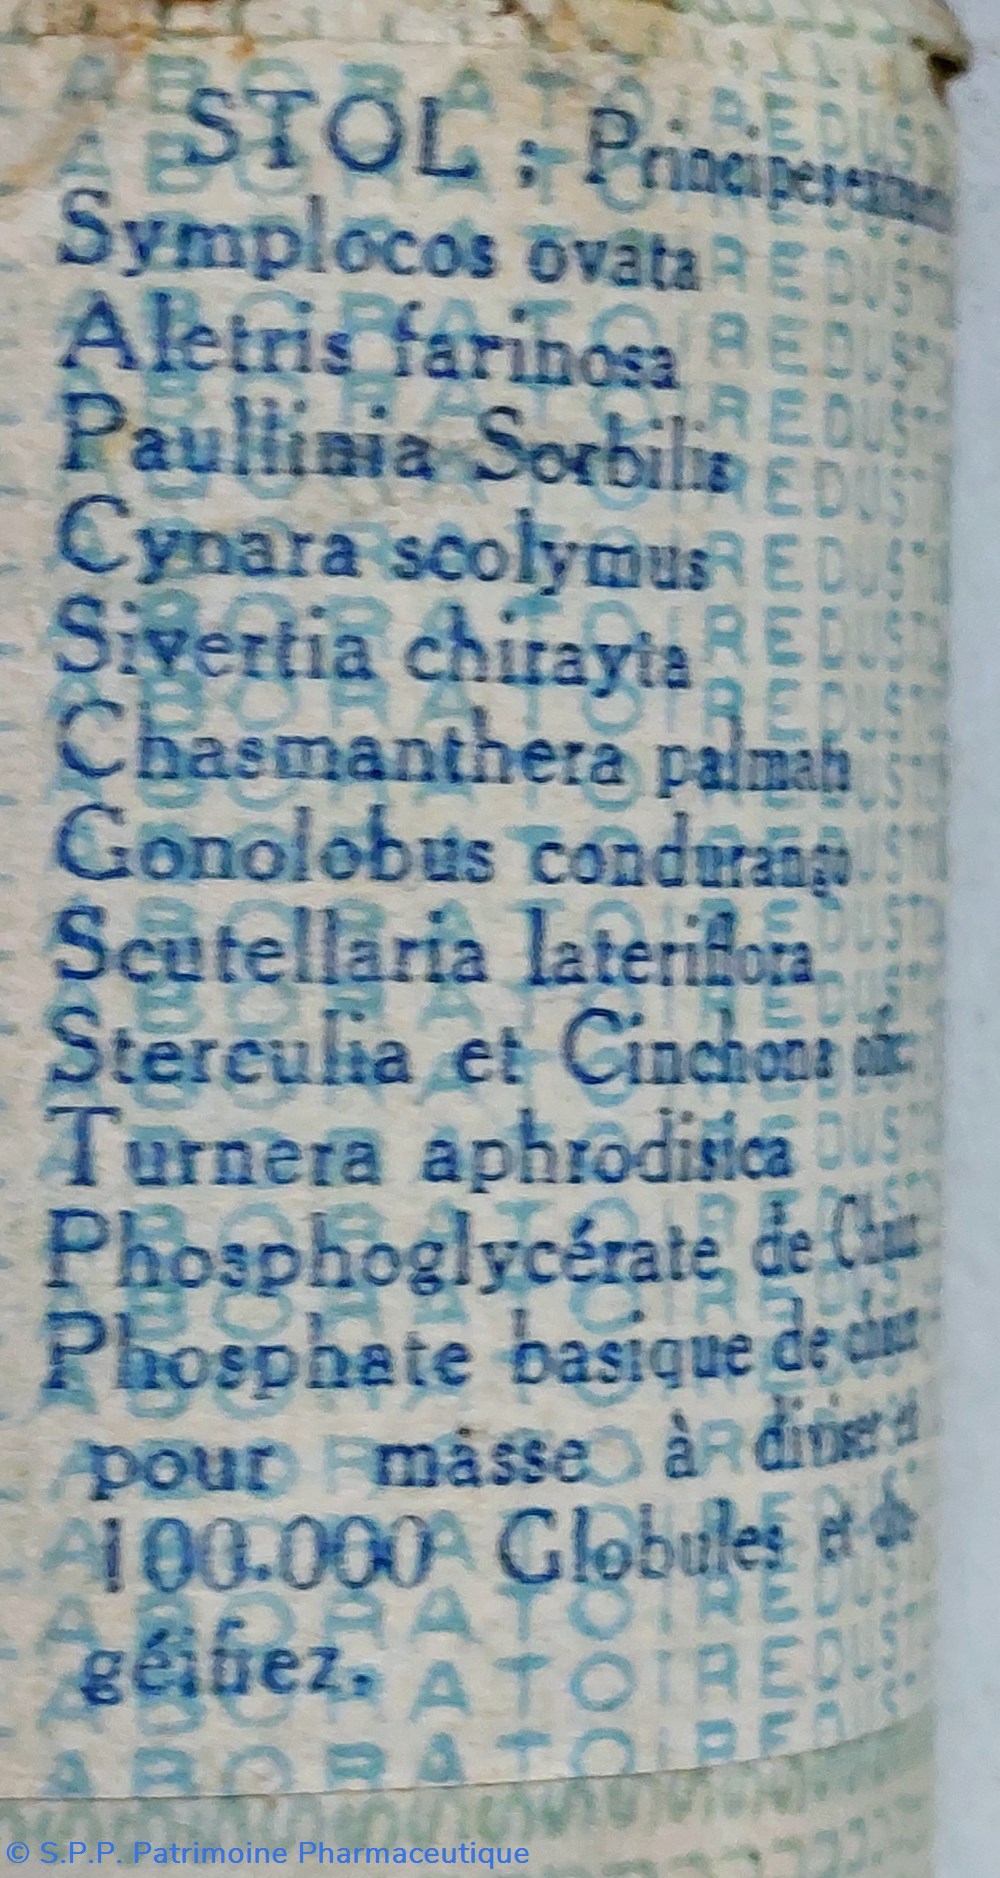 STOL : Principes
Symplocos ovata
Aletris farinosa
Paullinia Sorbilis
Cynara scolymus
Sivertia chirayta
Chasmanthera palmata
Gonolobus condurango
Scutellaria lateriflora
Sterculia et Cinchona
Turnera aphrodisica
Phosphoglycérate de Chaux
Phosphate basique de chaux
pour màsse à diviser et
100.000 Globules et
géifiez.
LABORATOIRE DU STOL
© S.P.P. Patrimoine Pharmaceutique